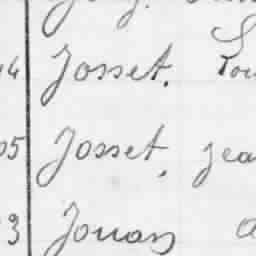 4 Josset.
05 Josset, Jea
3 Jouan